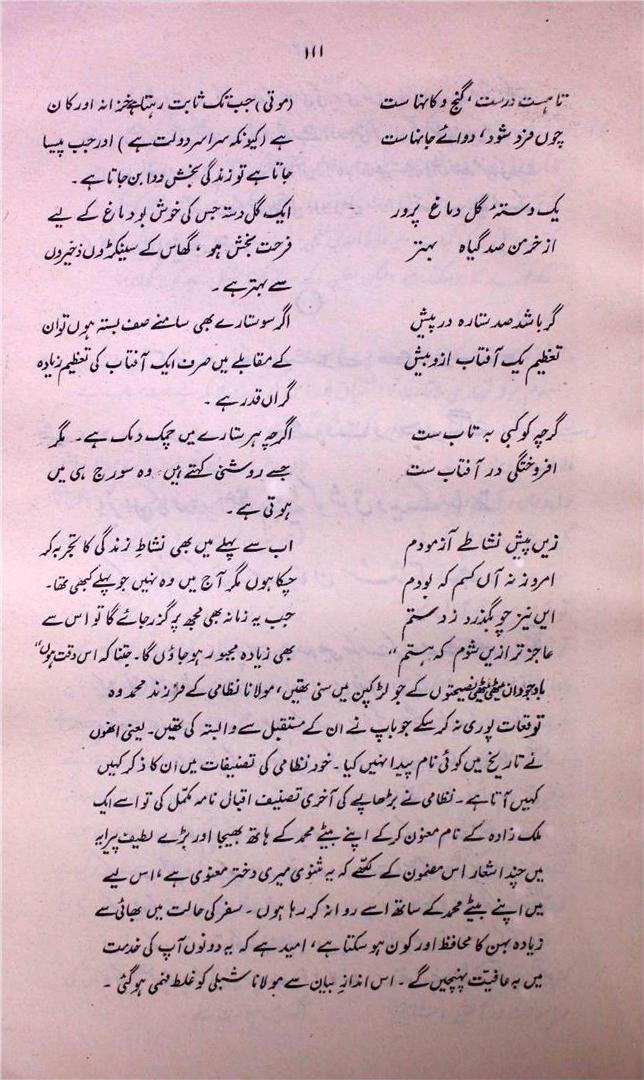 ۱۱۱
تا ہست درست، گنج و کانہا ست (موتی) جب تک ثابت رہتا ہے خزانہ اور کان
چوں خرد شود، دوائے جانہا ست ہے (کیونکہ سراسر دولت ہے) اور جب پیسا
جاتا ہے تو زندگی بخش دوا بن جاتا ہے۔
یک دستہٴ گل دماغ پرور ایک گل دستہ جس کی خوش بو دماغ کے لیے
از خرمن صد گیاہ بہتر فرحت بخش ہو، گھاس کے سینکڑوں ذخیروں
سے بہتر ہے۔
گر باشد صد ستارہ در پیش اگر سو ستارے بھی سامنے صف بستہ ہوں تو ان
تعظیم یک آفتاب ازو بیش کے مقابلے میں صرف ایک آفتاب کی تعظیم زیادہ
گراں قدر ہے۔
گرچہ کوکبی بہ تاب ست اگرچہ ہر ستارے میں چمک دمک ہے۔ مگر
افروختگی در آفتاب ست جسے روشنی کہتے ہیں وہ سورج ہی میں
ہوتی ہے۔
زیں پیش نشاطے آزمودم اب سے پہلے میں بھی نشاطِ زندگی کا تجربہ کر
امروز نہ آں کسم کہ بودم چکا ہوں مگر آج میں وہ نہیں جو پہلے کبھی تھا۔
ایں نیز چو بگذرد ز دستم جب یہ زمانہ بھی مجھ پر گزر جائے گا تو اس سے
عاجز تر ازیں شوم کہ ہستم“ بھی زیادہ مجبور ہو جاؤں گا۔ جتنا کہ اس وقت ہوں“
باوجود ان میٹھی میٹھی نصیحتوں کے جو لڑکپن میں سنی تھیں، مولانا نظامی کے فرزند محمد وہ
توقعات پوری نہ کر سکے جو باپ نے ان کے مستقبل سے وابستہ کی تھیں۔ یعنی انھوں
نے تاریخ میں کوئی نام پیدا نہیں کیا۔ خود نظامی کی تصنیفات میں ان کا ذکر کہیں
کہیں آتا ہے۔ نظامی نے بڑھاپے کی آخری تصنیف اقبال نامہ مکمل کی تو اسے ایک
ملک زادہ کے نام معنون کر کے اپنے بیٹے محمد کے ہاتھ بھیجا اور بڑے لطیف پیرایہ
میں چند اشعار اس مضمون کے لکھے کہ یہ مثنوی میری دختر معنوی ہے، اس لیے
میں اپنے بیٹے محمد کے ساتھ اسے روانہ کر رہا ہوں۔ سفر کی حالت میں بھائی سے
زیادہ بہن کا محافظ اور کون ہو سکتا ہے، امید ہے کہ یہ دونوں آپ کی خدمت
میں بہ عافیت پہنچیں گے۔ اس اندازِ بیان سے مولانا شبلی کو غلط فہمی ہو گئی۔